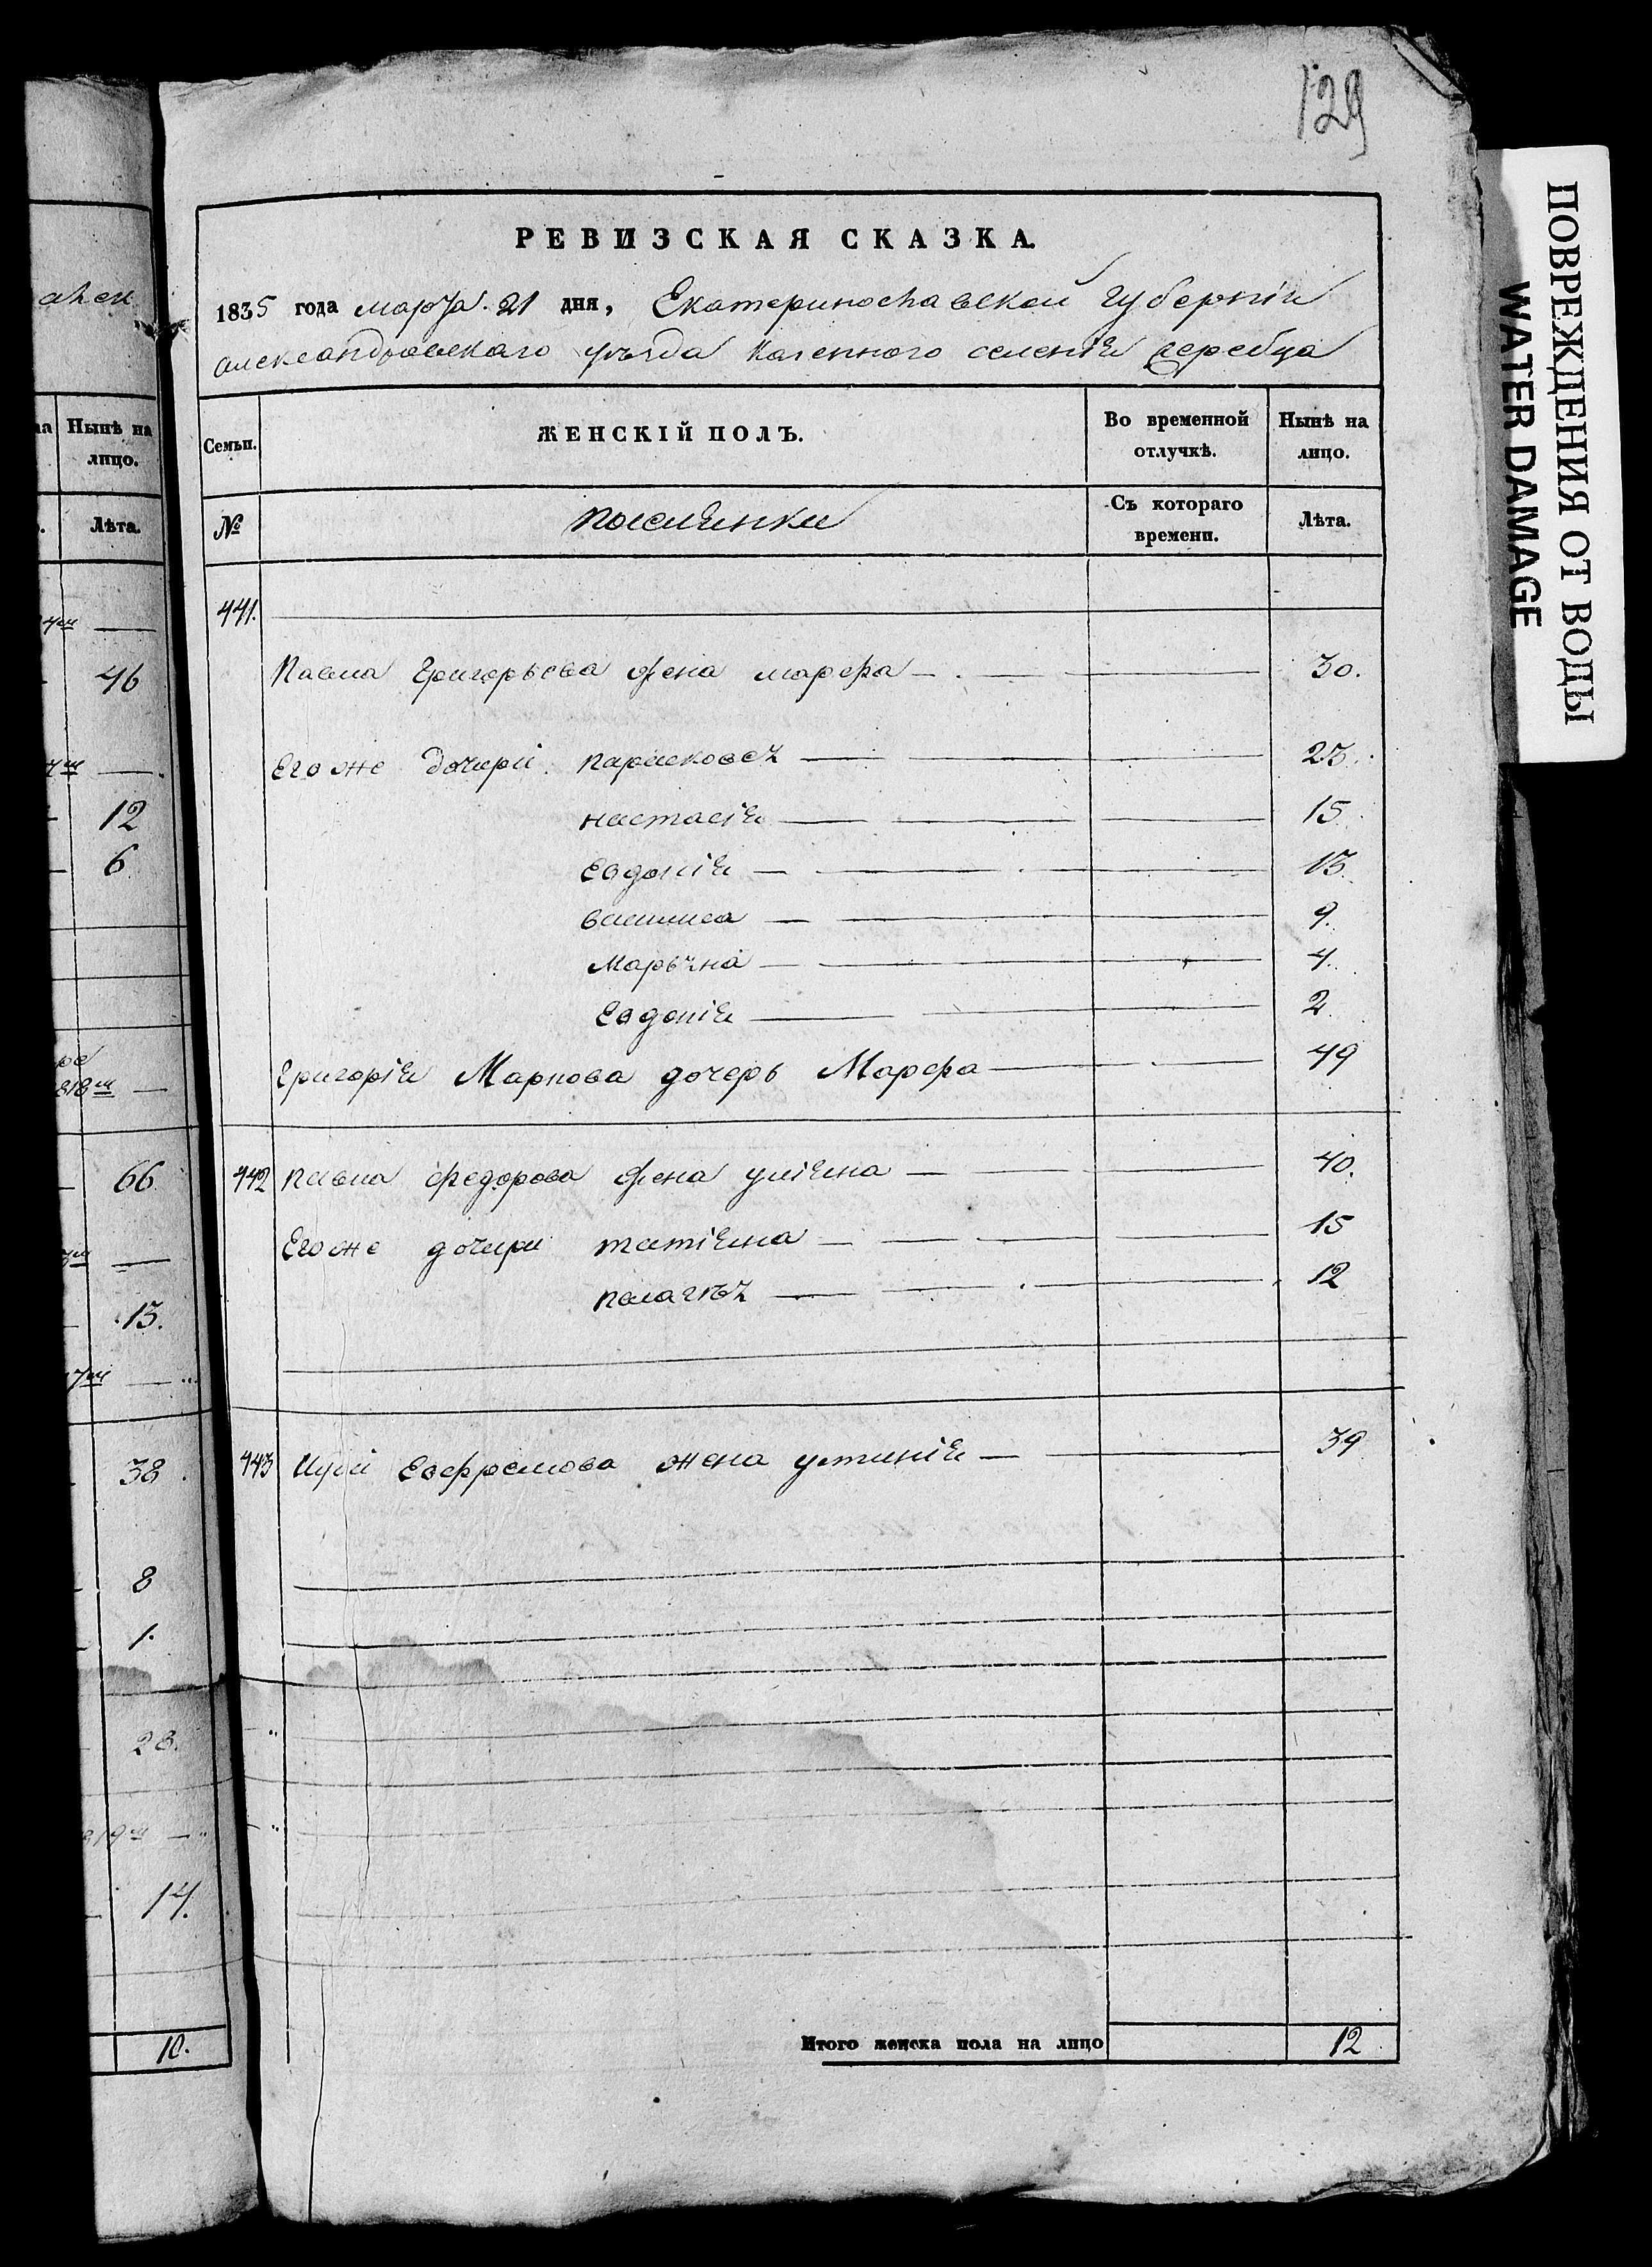 129
РЕВИЗСКАЯ СКАЗКА.
1835 года марта 21 дня, Екатеринославской губерніи
александровскаго уѣзда казенного селенія жеребца
Семьи.
ЖЕНСКІЙ ПОЛЪ.
Во временной отлучкѣ.
Нынѣ на лицо.
№
поселянки
Съ котораго времени.
Лѣта.
441.
Павла Григорьева жена марфа 30.
Его же дочери парасковея 23.
настасія 15.
Евдокія 13.
василиса 9.
Марьяна 4.
Евдокія 2
Григорія Маркова дочерь Марфа 49
442 павла федорова жена уліяна 40.
Его же дочери татіяна 15
палагѣя 12
443 Евфремова жена устинія 39
Итого женска пола на лицо 12
Нынѣ на лицо.
Лѣта.
46
12
6
66
13.
38
8
1.
28.
14.
10.
ПОВРЕЖДЕНИЯ ОТ ВОДЫ
WATER DAMAGE